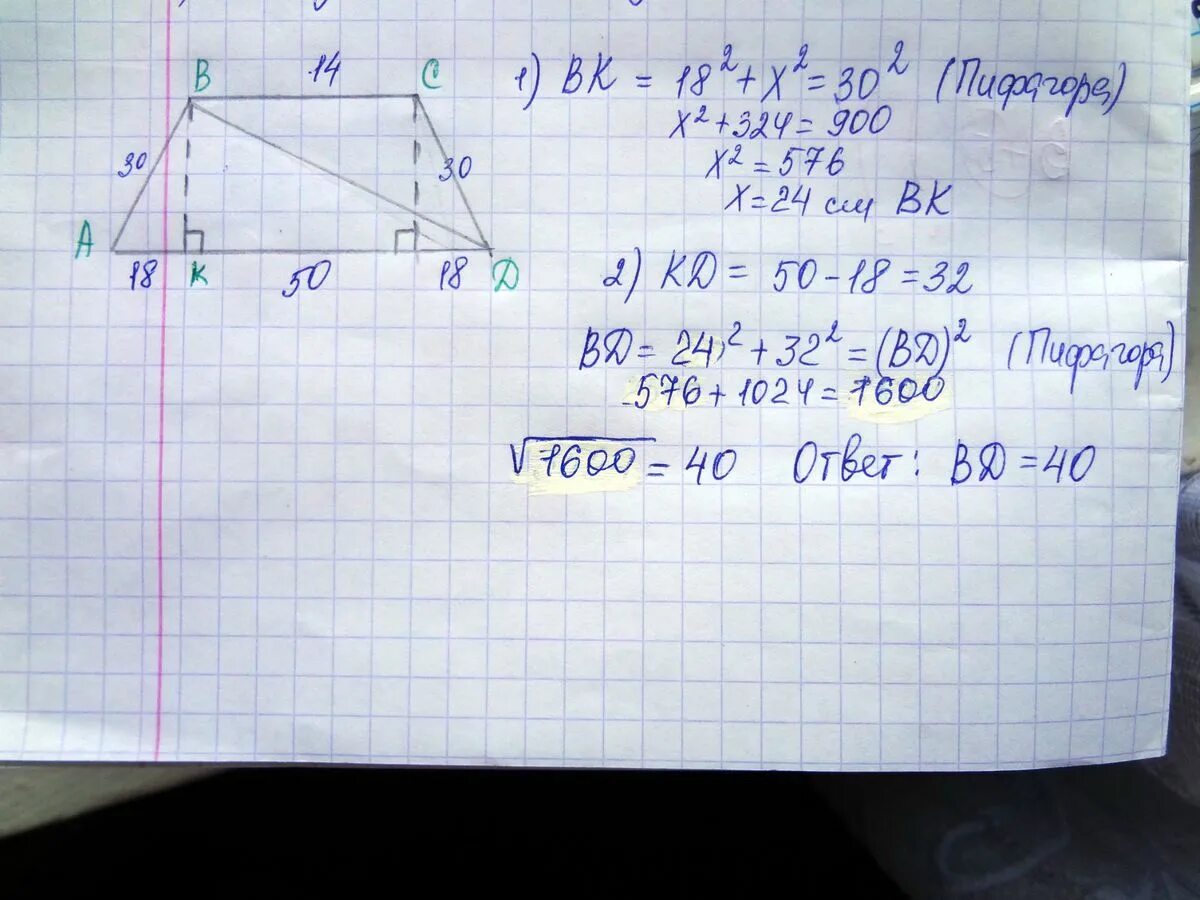 B 14 C
30 30
A 18 K 50 18 D
1) BK = 18² + x² = 30² (Пифагора)
x² + 324 = 900
x² = 576
x = 24 см BK
2) KD = 50 - 18 = 32
BD = 24² + 32² = (BD)² (Пифагора)
576 + 1024 = 1600
√1600 = 40 Ответ: BD = 40